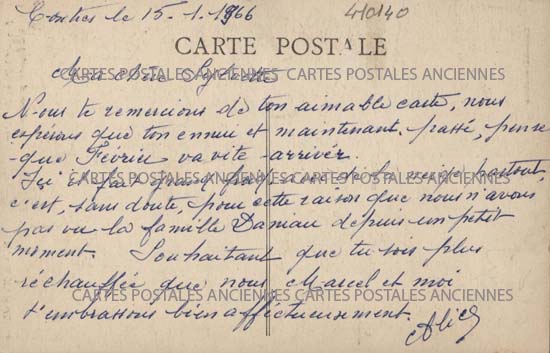 Contres le 15.1.1966
410140
CARTE POSTALE
Ma chère
CARTES POSTALES ANCIENNES CARTES POSTALES ANCIENNES
Nous te remercions de ton aimable carte, nous
espérons que ton ennui est maintenant passé, pense
que Février va vite arriver.
Ici il fait grand froid, de la neige partout,
CARTES POSTALES ANCIENNES CARTES POSTALES ANCIENNES
c'est, sans doute, pour cette raison que nous n'avons
pas vu la famille Daniau depuis un petit
moment. Souhaitant que tu sois plus
réchauffée que nous Marcel et moi
CARTES POSTALES ANCIENNES CARTES POSTALES ANCIENNES
t'embrassons bien affectueusement.
Alice